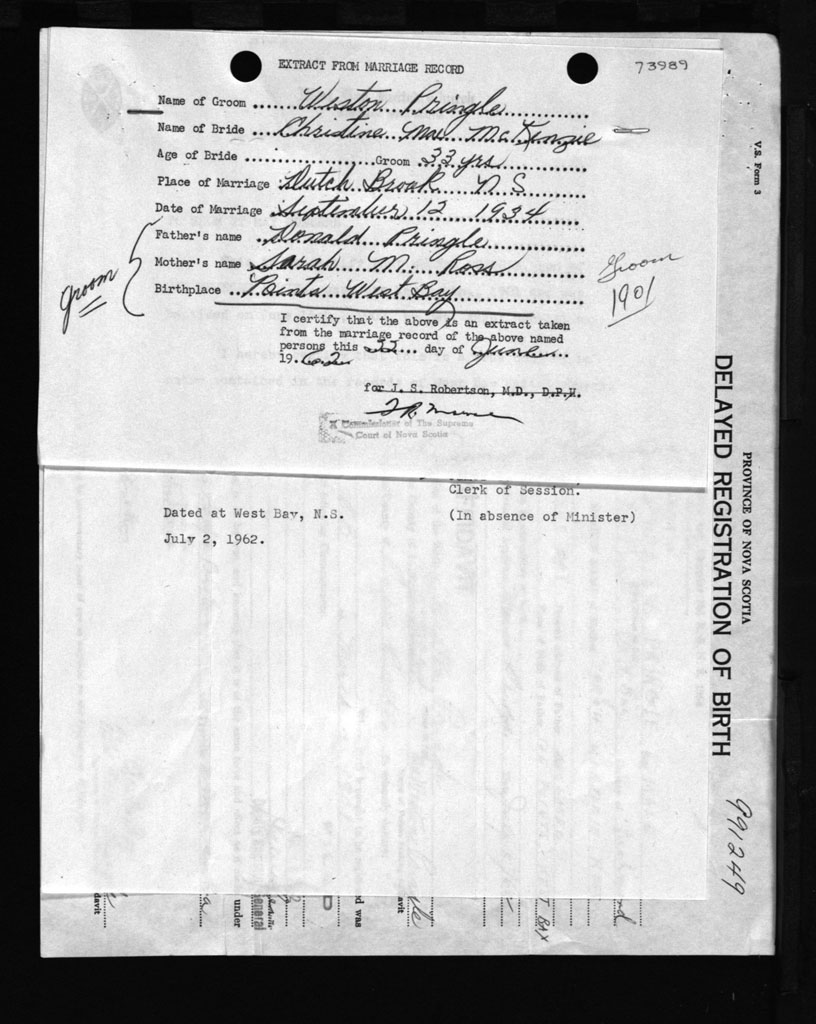 EXTRACT FROM MARRIAGE RECORD
73989
Name of Groom Weston Pringle
Name of Bride Christine Mae McKenzie
Age of Bride Groom 33 yrs
Place of Marriage Dutch Brook N S
Date of Marriage September 12 1934
Father's name Donald Pringle
Mother's name Sarah M. Ross
Birthplace Points West Bay
Groom
Groom
1901
I certify that the above is an extract taken
from the marriage record of the above named
persons this 22 day of
19.62
for J. S. Robertson, M.D., D.P.H.
A Commissioner of The Supreme
Court of Nova Scotia
Clerk of Session.
Dated at West Bay, N.S.
(In absence of Minister)
July 2, 1962.
V.S. Form 3
PROVINCE OF NOVA SCOTIA
DELAYED REGISTRATION OF BIRTH
991249
davit
under
General
d was
avit
T BAY
nd